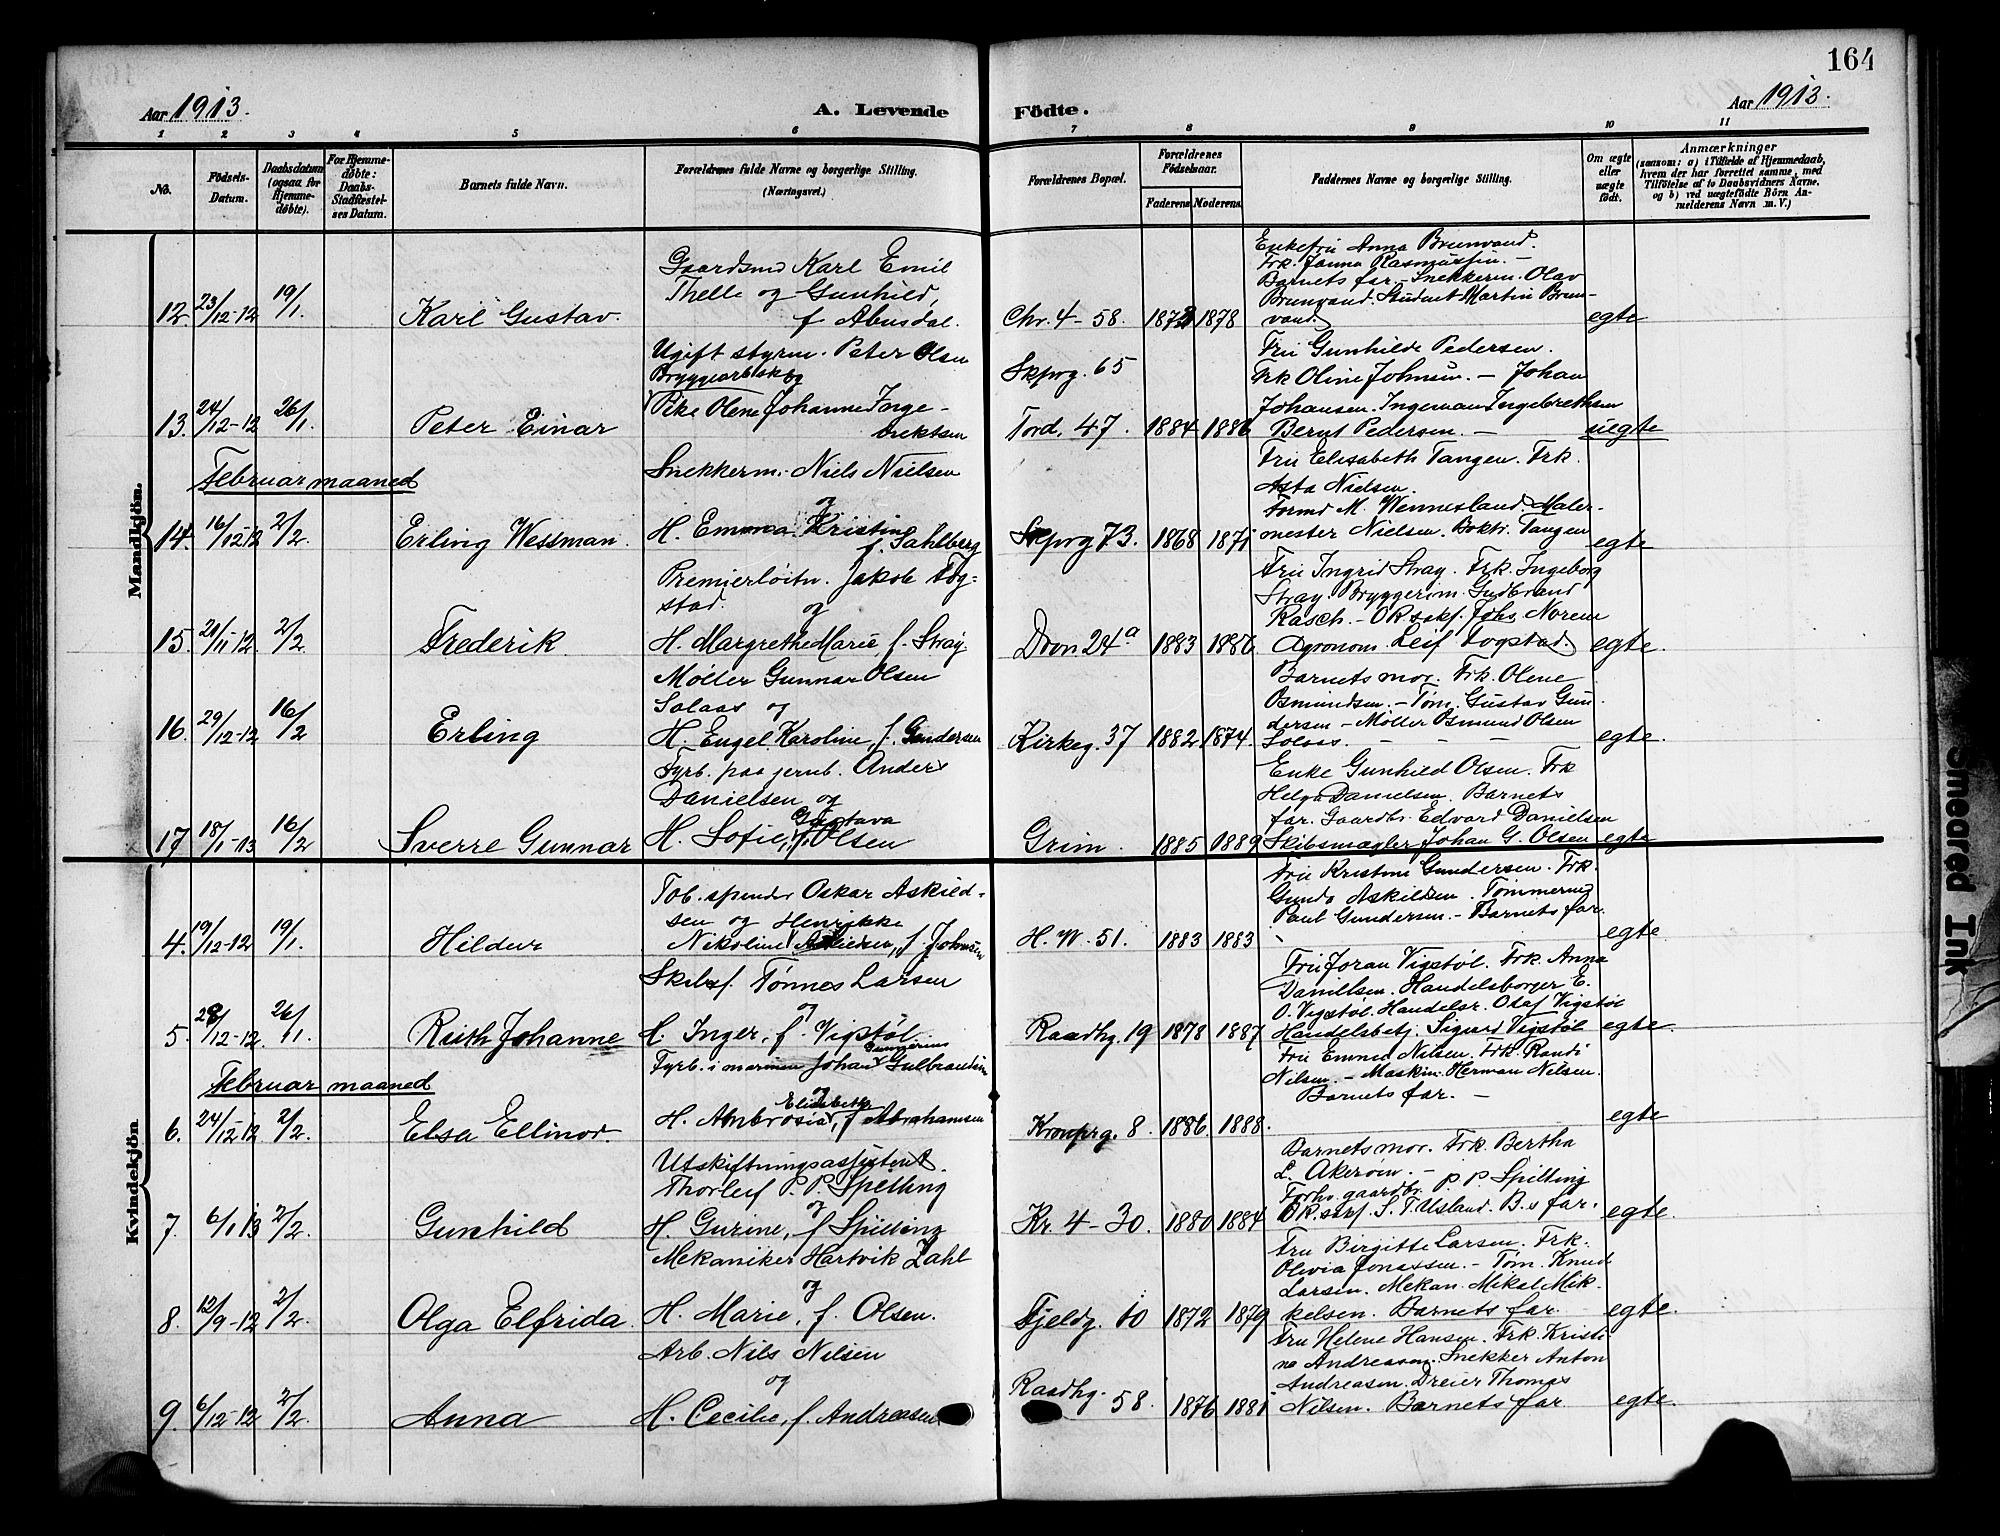 164
Aar 1913.
A. Levende
Födte.
Aar 1913.
1 2 3 4 5 6 7 8 9 10 11
No.
Födsels-
Datum.
Daabsdatum
(ogsaa for
Hjemme-
døbte).
For Hjemme-
døbte:
Daabs-
Stadfæstel-
ses Datum.
Barnets fulde Navn.
Forældrenes fulde Navne og borgerlige Stilling.
(Næringsvei.)
Forældrenes Bopæl.
Forældrenes
Födselsaar.
Faderens. Moderens.
Faddernes Navne og borgerlige Stilling.
Om ægte
eller
uægte
födt.
Anmærkninger
(saasom: a) i Tilfælde af Hjemmedaab,
hvem der har forrettet samme, med
Tilföielse af to Daabsvidners Navne,
og b) ved uægtefödte Börn An-
melderens Navn m. V.)
Mandkjön.
Gaardsmd Karl Emil
Thelle og Gunhild,
f Abusdal.
12. 23/12-12 19/1 Karl Gustav.
Chr. 4-58. 1878 1878
Enkefru Anna Brunvand.
Frk. Janna Rasmussen. -
Barnets far - Snekkerm. Olav
Brunvand. Student Martin Brun-
vand.
egte
Ugift styrm. Peter Olsen
Bryggearb
Pike Olene Johanne Inge-
brektsen
13. 24/12-12 26/1. Peter Einar
Skprg. 65
Tord. 47. 1884 1886
Fru Gunhilde Pedersen.
Frk Oline Johnsen. - Johan
Johansen. Ingeman Ingebrethsen
Bernt Pedersen. -
uegte
Februar maaned
Snekkerm. Niels Nielsen
og
H. Emma Kristine
f. Sahlberg
14. 16/12-12 2/2. Erling Wessman.
Skprg 73. 1868 1871
Fru Elisabeth Tangen. Frk.
Asta Nielsen.
Formd M. Wennesland. Maler-
mester Nielsen. Boktr. Tangen
egte
Premierløitn. Jakob Tog-
stad. og
H. Margrethe Marie f. Stray.
15. 21/11-12. 2/2 Frederik.
Dron. 24a 1883 1886
Fru Ingrid Stray. Frk. Ingeborg
Stray. Bryggerim. Gudbrand
Rasch. - OR sakf. Johs Norem
Agronom Leif Togstad.
egte.
Møller Gunnar Olsen
Solaas og
H. Engel Karoline, f. Gundersen
16. 29/12-12 16/2 Erling
Kirkeg. 37 1882 1874.
Barnets mor. Frk. Olene
Osmundsen. - Tøm. Gustav Gun-
dersen - Møller Osmund Olsen
Solaas. - - -
egte.
Fyrb. paa jernb. Anders
Danielsen og
H. Sofie Gustava, f. Olsen
17. 18/1-13 16/2 Sverre Gunnar
Grim. 1885 1889
Enke Gunhild Olsen. Frk
Helga Danielsen. Barnets
far. Gaardbr. Edvard Danielsen
Skibsmægler Johan G. Olsen
egte
Kvindekjön.
Tob. spinder Oskar Askild-
sen og Henrikke
Nikoline, f Johnsen
4. 19/12-12 19/1. Hildur
H. W. 51. 1883 1883
Fru Kristine Gundersen. Frk.
Gunda Askildsen. Tømmermd
Paul Gundersen. - Barnets far.
egte.
Skibsf. Tønnes Larsen
og
H. Inger, f. Vigstøl
5. 28/12-12. 26/1. Ruth Johanne
Raadhg. 19 1878 1887
Fru Joran Vigstøl. Frk. Anna
Daniellsen. Handelsborger E.
O. Vigstøl. Handelsr. Olaf Vigstøl
Handelsbetj. Sigurd Vigstøl
egte.
Februar maaned
Fyrb. i marinen Johan Gulbrandsen
og
H. Ambrosia Elisabeth, f Abrahamsen
6. 24/12-12 2/2. Elsa Ellinor.
Kronprg. 8. 1886. 1888.
Fru Emma Nilsen. Frk. Randi
Nilsen. - Maskin. Herman Nilsen.
Barnets far. -
egte
Utskiftningsassistent
Thorleif P. P. Spilling
og
H. Gurine, f Spilling
7. 6/1 13 2/2. Gunhild
Kr. 4-30. 1880 1884
Barnets mor. Frk. Bertha
L. Akerøin. -
Forhv. gaardbr. P. P. Spilling
OR. sakf. S. T. Usland. B.s far.
egte.
Mekaniker Hartvik Zahl
og
H. Marie, f. Olsen.
8. 12/9-12 2/2. Olga Elfrida.
Fjeldg. 10 1872 1879
Fru Birgitte Larsen. Frk.
Olivia Jonassen. - Tøm. Knud
Larsen. Mekan. Mikal Mik-
kelsen. Barnets far.
egte.
Arb. Nils Nilsen
og
H. Cecilie, f. Andreasen
9. 6/12-12 2/2. Anna
Raadhg. 58. 1876 1881
Fru Helene Hansen. Frk. Kristi-
ne Andreasen. Snekker Anton
Andreasen. Dreier Thomas
Nilsen. Barnets far
egte.
Smeared Ink